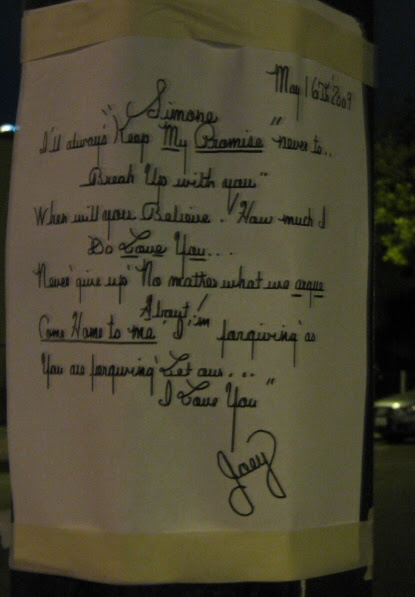 May 16th 2009
"Simone"
I'll always Keep My Promise never to..
Break Up with you"
When will you Believe. How much I
Do Love You...
Never give up' No matter what we argue
About!
Come Home to me' I'm forgiving' as
You are forgiving' Let our...
I Love You"
Joey